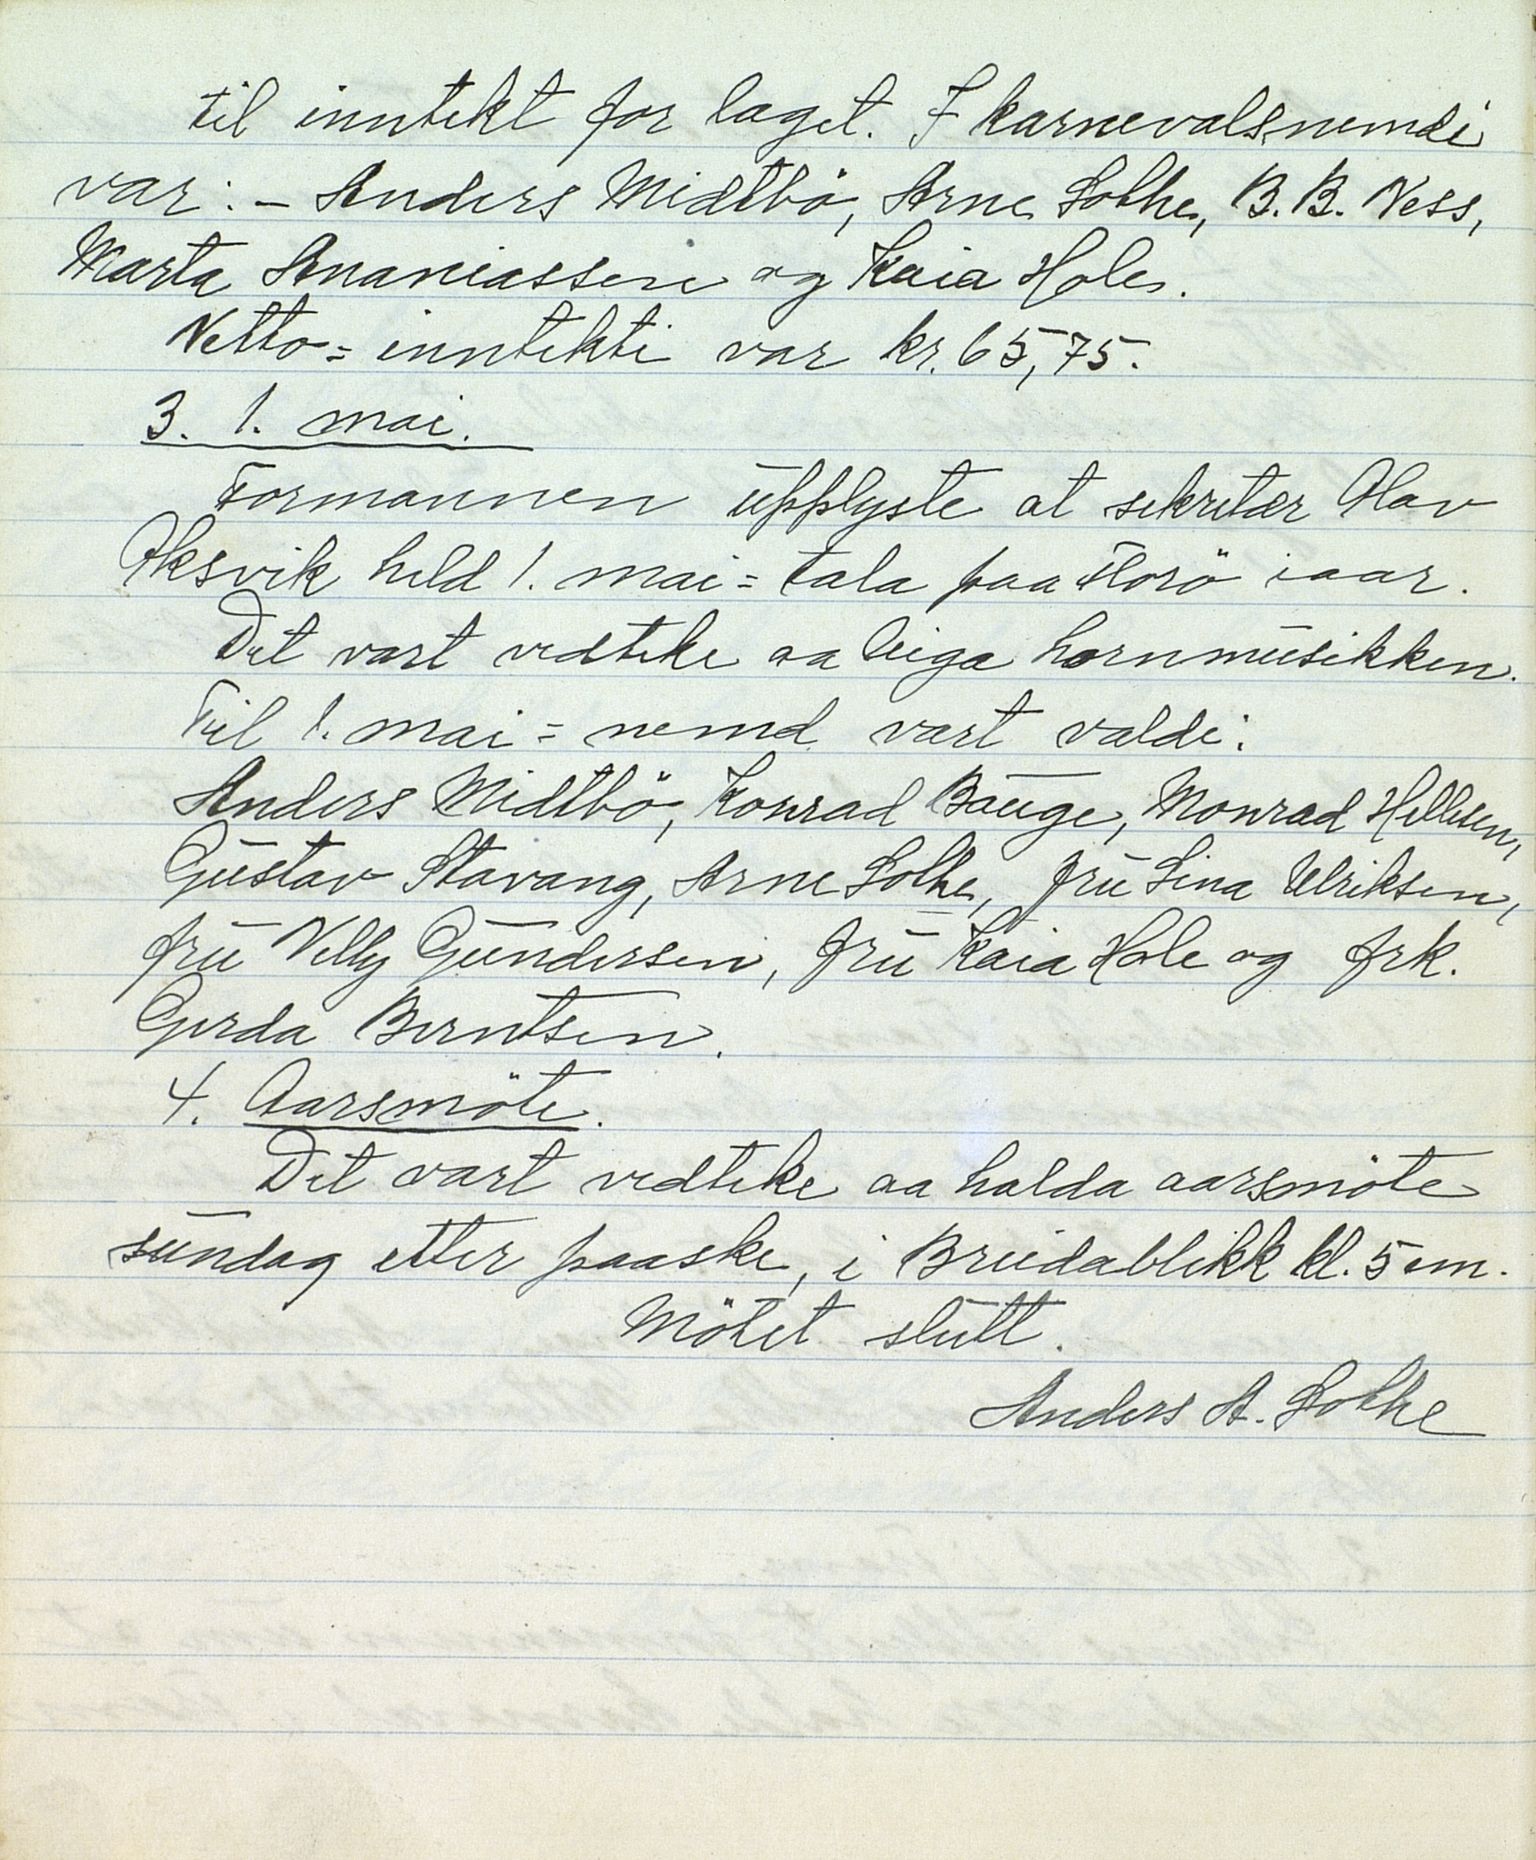 til inntekt for laget. I karnevalsnemdi
var: - Anders Midtbö, Arne Solhe, B. B. Ness,
Marta Ananiassen og Kaia Hole.
Netto= inntekti var kr. 65,75.
3. 1. mai.
Formannen upplyste at sekretær Olav
Oksvik held 1. mai= tala paa Florö iaar.
Det vart vedteke aa leiga hornmusikken.
Til 1. mai= nemd vart valde:
Anders Midtbö, Konrad Bauge, Monrad Hellesen,
Gustav Stavang, Arne Solhe, fru Lina Ulriksen,
fru Nelly Gundersen, fru Kaia Hole og frk.
Gerda Berntsen.
4. Aarsmöte.
Det vart vedteke aa halda aarsmöte
sundag etter paaske, i Breidablikk kl. 5 em.
Mötet slutt.
Anders A. Solhe